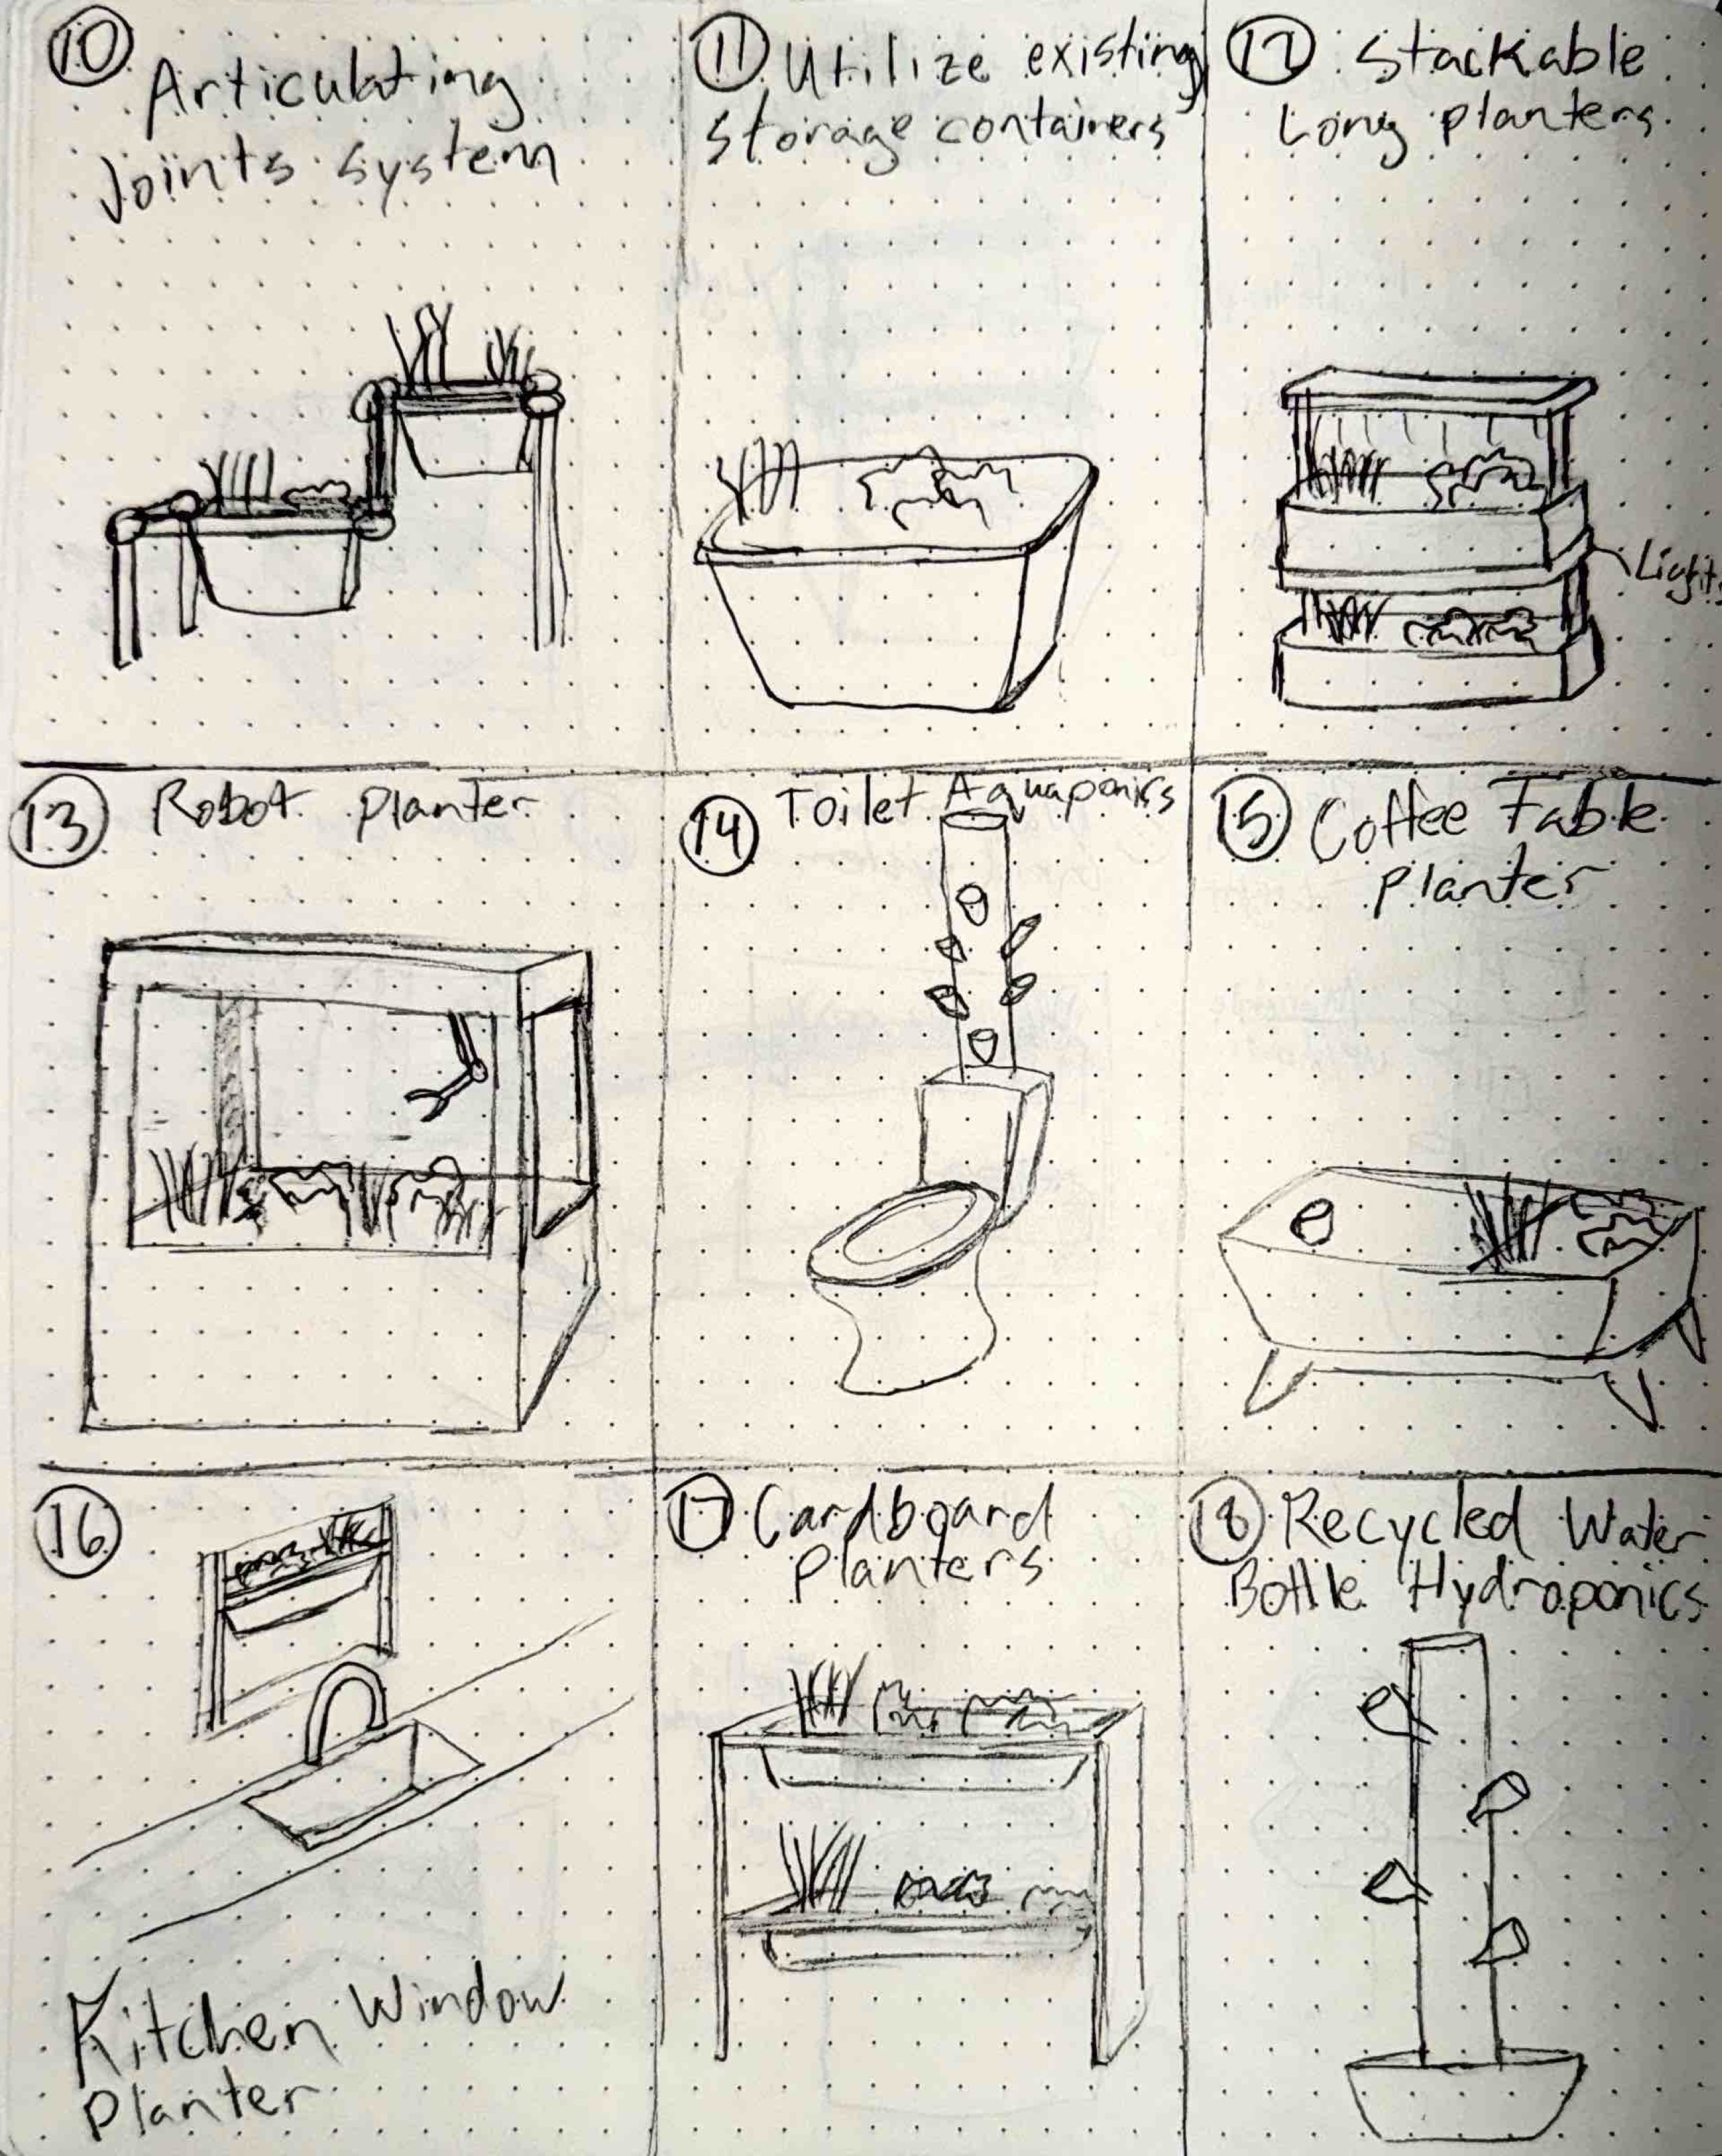 10 Articulating
Joints system
11 Utilize existing
storage containers
12 Stackable
Long planters
Lights
13 Robot Planter
14 Toilet Aquaponics
15 Coffee Table
Planter
16
Kitchen Window
Planter
17 Cardboard
Planters
18 Recycled Water
Bottle Hydroponics